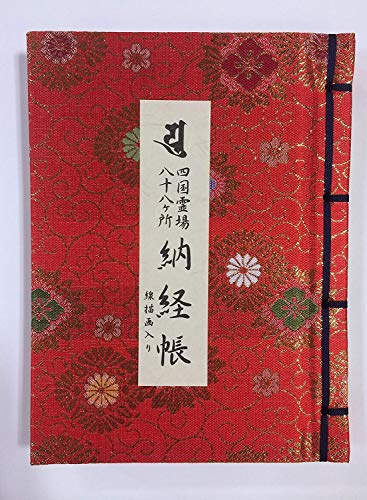 𑖀𑖽
四国霊場
八十八ヶ所
納経帳
線描画入り